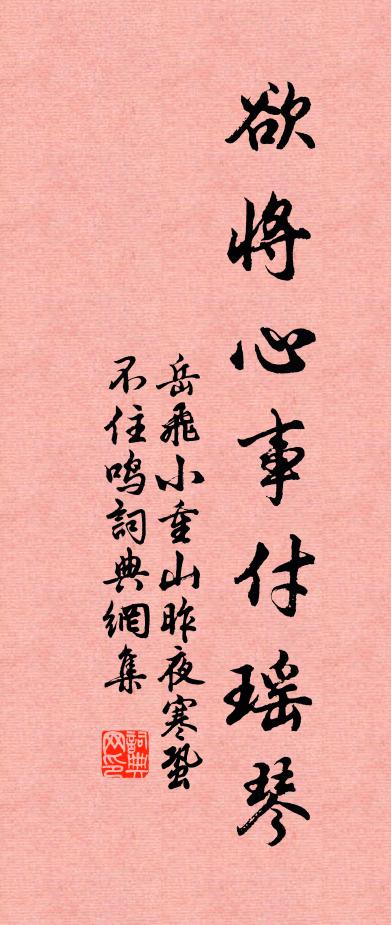 欲将心事付瑶琴
岳飛小重山昨夜寒蛩
不住鳴詞典網集
詞典
网印